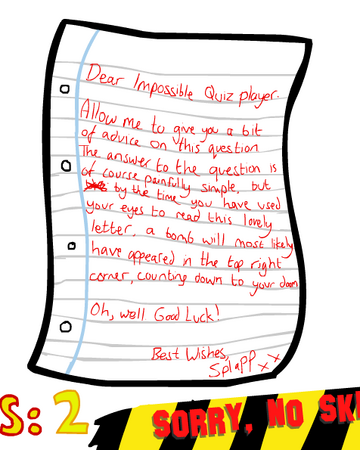 Dear Impossible Quiz player.
Allow me to give you a bit
of advice on this question
The answer to the question is
of course painfully simple, but
by the time you have used
your eyes to read this lovely
letter, a bomb will most likely
have appeared in the top right
corner, counting down to your doom
Oh, well Good Luck!
Best Wishes,
Splapp xx
S: 2
SORRY, NO SK